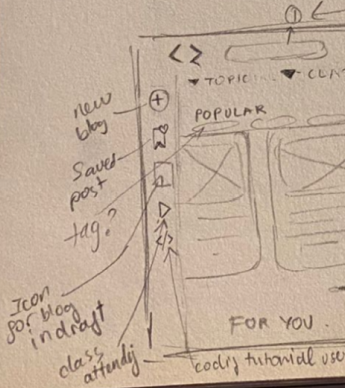 ①
< >
▼ TOPIC ▼
new
blog
POPULAR
Saved
post
tag?
</>
Icon
for blog
in draft
FOR YOU.
class
attendij
codij tutorial use